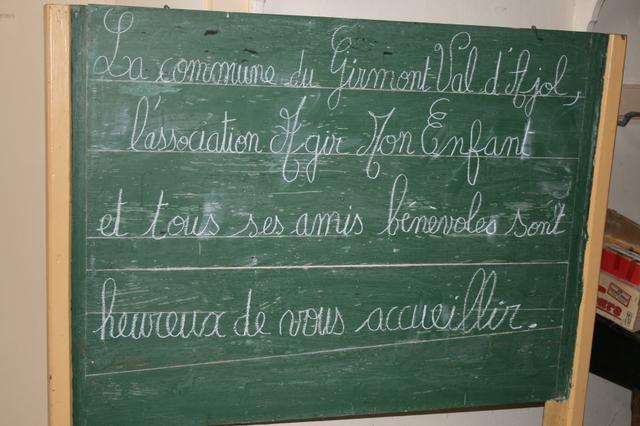 La commune du Girmont-Val d'Ajol,
l'association Agir Mon Enfant
et tous ses amis bénévoles sont
heureux de vous accueillir.